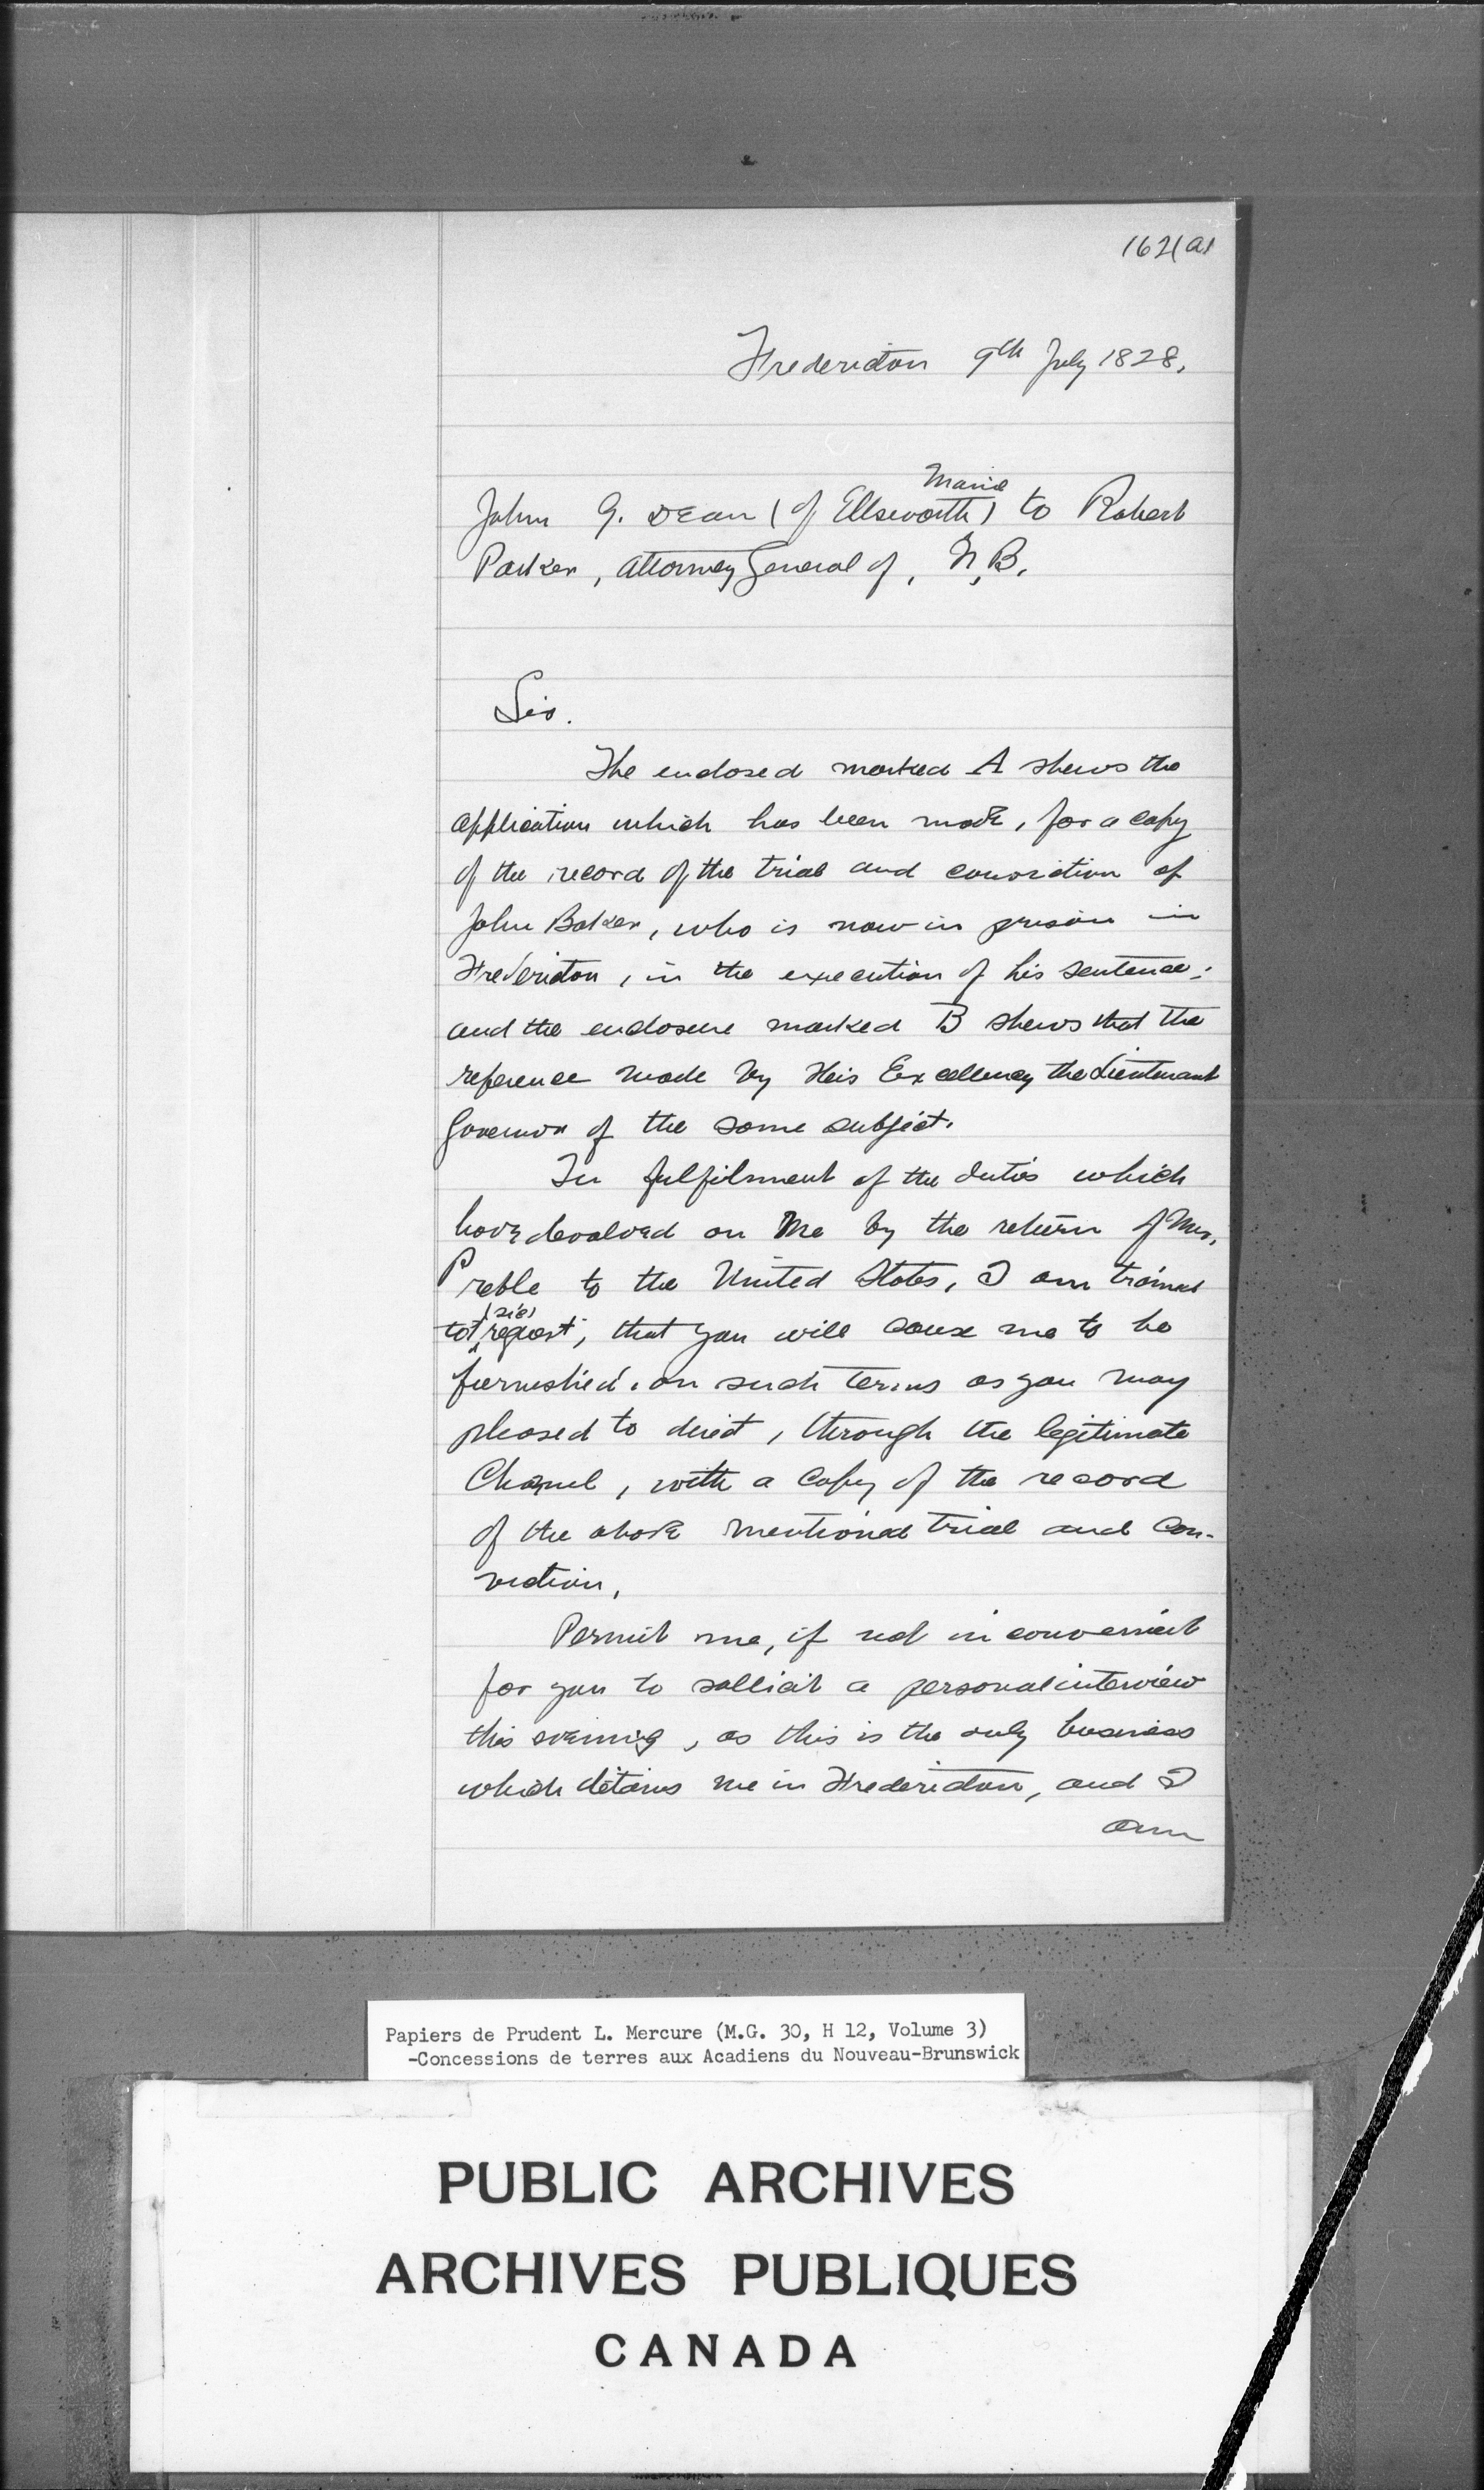 162(a)
Fredericton 9th July 1828.
Maine
John G. Dean (of Ellsworth) to Robert
Parker, Attorney General of, N,B.
Sir.
The enclosed marked A shews the
application which has been made, for a copy
of the record of the trial and conviction of
John Baker, who is now in prison in
Fredericton, in the execution of his sentence;
and the enclosure marked B shews that the
reference made by His Excellency the Lieutenant
Governor of the same subject.
In fulfilment of the duties which
have devolved on me by the return of Mr.
Preble to the United States, I am
(sic)
to request, that you will cause me to be
furnished, on such terms as you may
pleased to direct, through the legitimate
Channel, with a copy of the record
of the above mentioned trial and con-
viction.
Permit me, if not inconvenient
for you to sollicit a personal interview
this evening, as this is the only business
which detains me in Fredericton, and I
am
Papiers de Prudent L. Mercure (M.G. 30, H 12, Volume 3)
-Concessions de terres aux Acadiens du Nouveau-Brunswick
PUBLIC ARCHIVES
ARCHIVES PUBLIQUES
CANADA